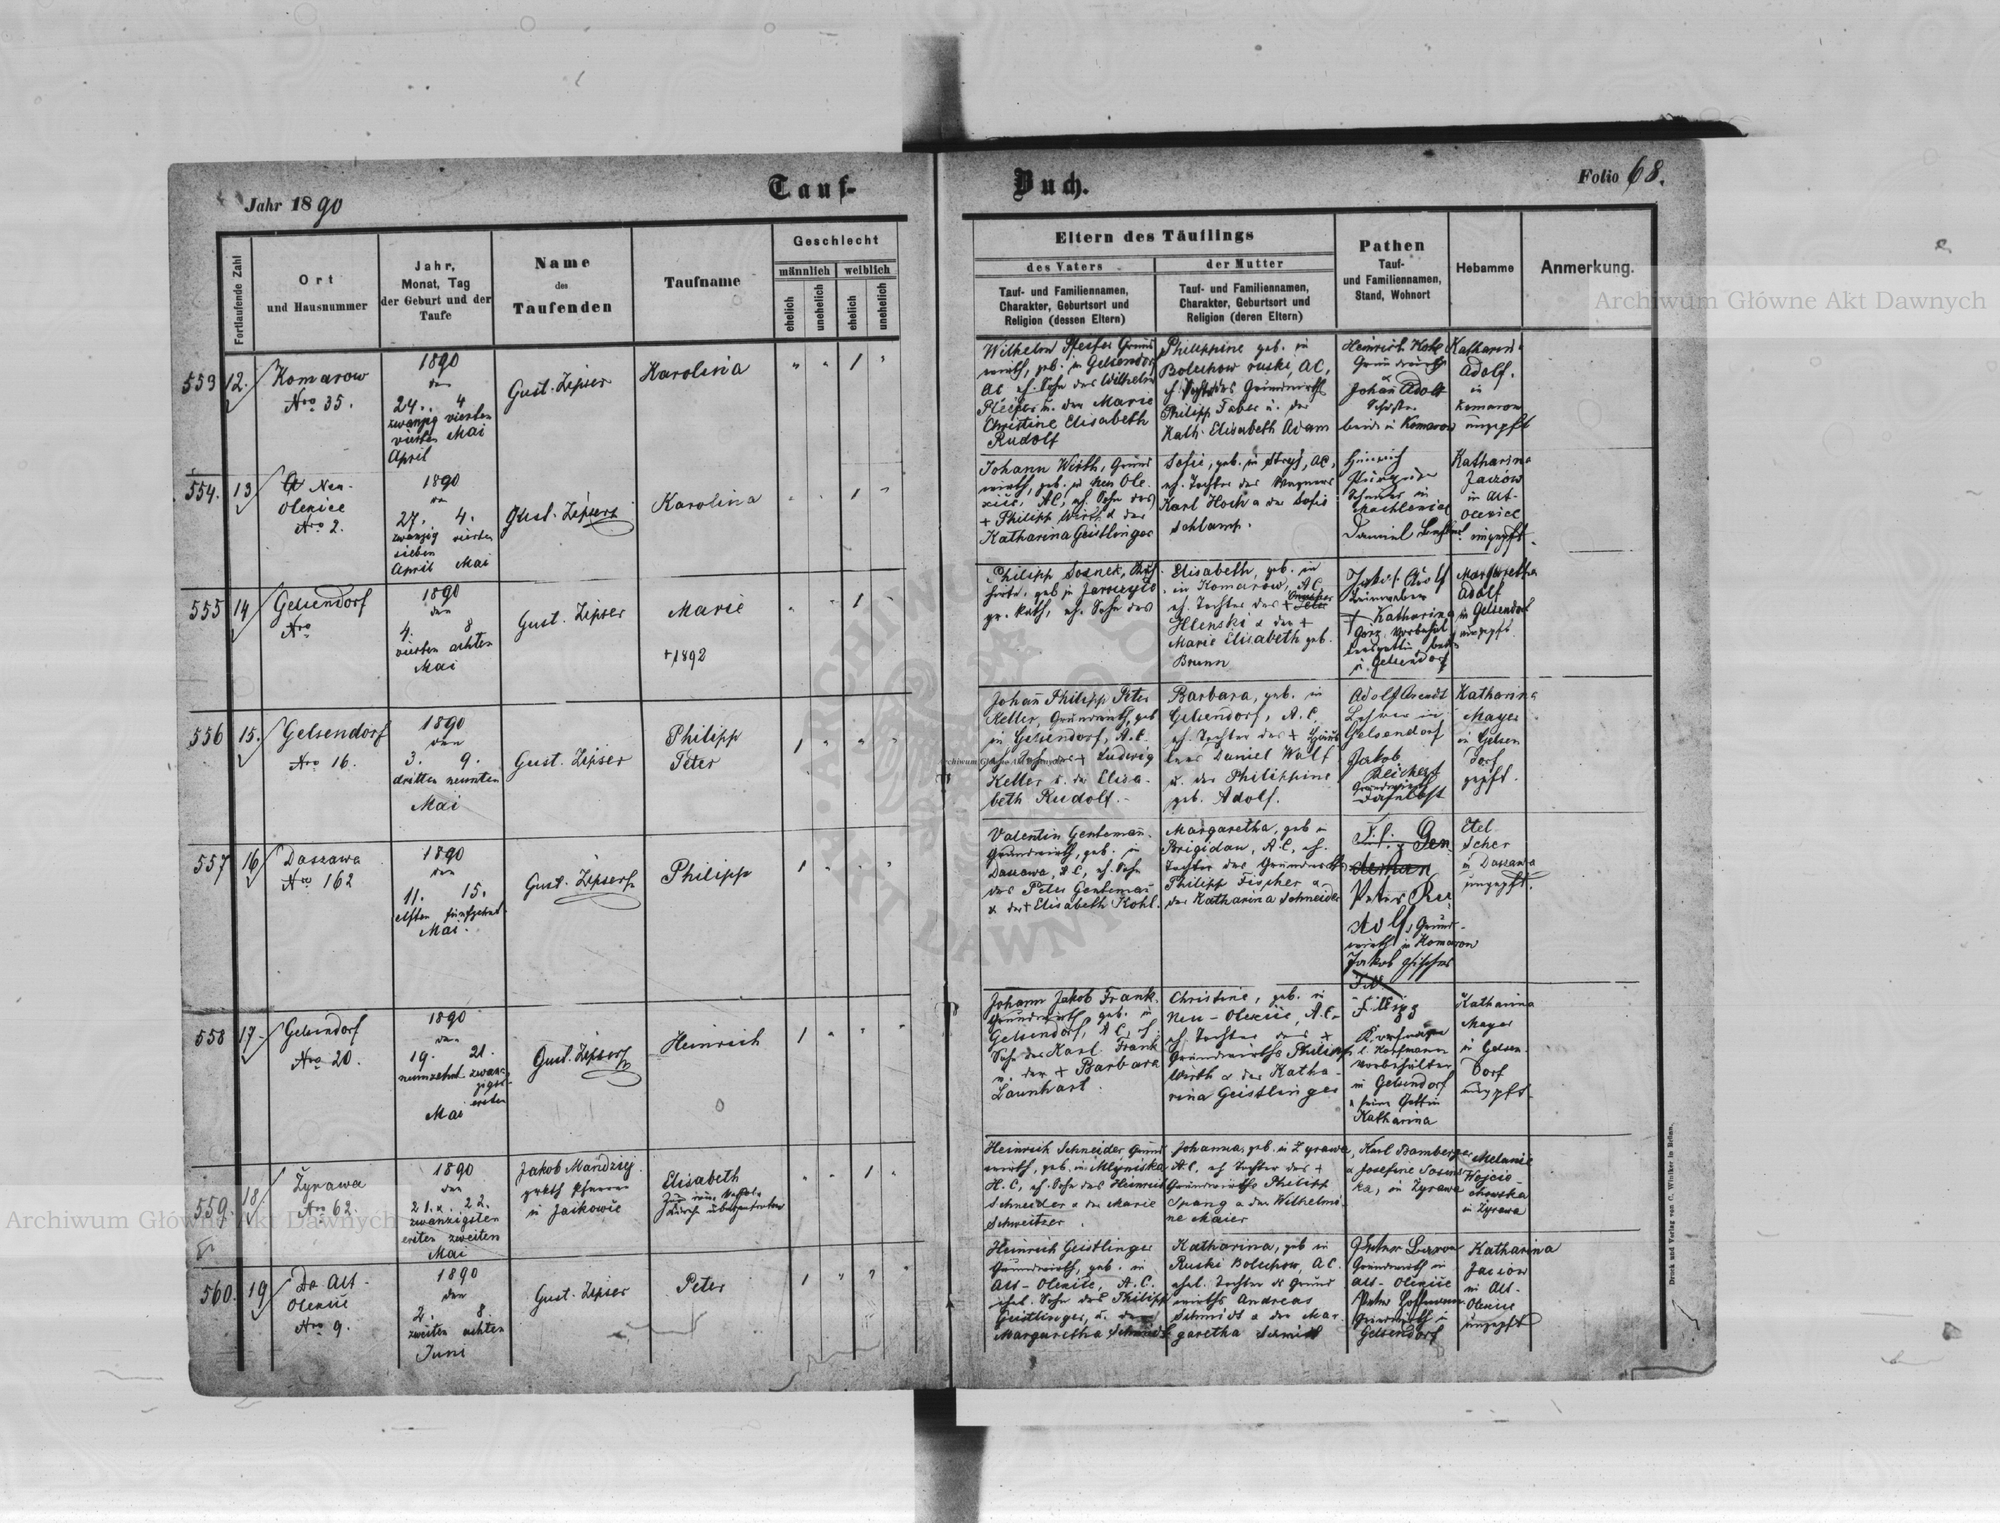 Jahr 1890
Tauf-
Buch.
Folio 68.
Fortlaufende Zahl
Ort
und Hausnummer
Jahr,
Monat, Tag
der Geburt und der
Taufe
Name
des
Taufenden
Taufname
Geschlecht
männlich
weiblich
ehelich
unehelich
ehelich
unehelich
Eltern des Täuflings
des Vaters
Tauf- und Familiennamen,
Charakter, Geburtsort und
Religion (dessen Eltern)
der Mutter
Tauf- und Familiennamen,
Charakter, Geburtsort und
Religion (deren Eltern)
Pathen
Tauf-
und Familiennamen,
Stand, Wohnort
Hebamme
Anmerkung.
553 12.
Komarow
Nro 35.
1890
den
24. 4
zwanzig vierten
vierten Mai
April
Gust. Zipser
Karolina
" " 1 "
Wilhelm Pfeifer Grund
wirth, geb. in Gelsendorf
AC eh. Sohn des Wilhelm
Pfeifer u. der Marie
Christine Elisabeth
Rudolf
Philippine geb. in
Bolechow ruski, AC,
Philipp Faber u. der
Kath. Elisabeth Adam
Heinrich Kohl
Johann Adolf
beide in Komarow
Katharina
Adolf.
in
Komarow
ungepft
554. 13
Neu-
Olexice
Nro 2.
1890
den
27. 4.
zwanzig vierten
sieben
April Mai
Gust. Zipser
Karolina
" " 1 "
Johann Wirth, Grund
wirth, geb. in Neu Ole-
xice, AC, eh. Sohn des
+ Philipp Wirth & der
Katharina Geistlinger
Sofie, geb. in Stryj, AC,
eh. Tochter des Wagners
Karl Koch & der Sofie
Schlamp.
Heinrich
Schuster in
Daniel
Katharina
Jaciów
in Alt-
Olexice
ungepft.
555 14
Gelsendorf
Nro
1890
den
4. 8
vierten achten
Mai
Gust. Zipser
Marie
+1892
" " 1 "
Philipp Sosnek,
geb. in
gr. kath, eh. Sohn des
Elisabeth, geb. in
in Komarow, AC
eh. Tochter des +
Hlenski & der +
Marie Elisabeth geb.
Brunn
Jakob Adolf
+ Katharina
in Gelsendorf
Margaretha
Adolf
in Gelsendorf
ungepft.
556 15.
Gelsendorf
Nro 16.
1890
den
3. 9.
dritten neunten
Mai
Gust. Zipser
Philipp
Peter
1 " " "
Johann Philipp Peter
Keller, Grundwirth, geb
in Gelsendorf, A.C.
eh. Sohn des + Ludwig
Keller u. der Elisa-
beth Rudolf.-
Barbara, geb. in
Gelsendorf, A.C.
eh. Tochter des +
Daniel Wolf
u. der Philippine
geb. Adolf.
Adolf Arendt
Lehrer in
Gelsendorf
Jakob
Reichert
Grundwirth
daselbst
Katharina
Mayer
in Gelsen
dorf
gepft.
557 16
Daszawa
Nro 162
1890
den
11. 15.
elften fünfzehnt.
Mai.
Gust. Zipser
Philipp
1 " " "
Valentin Gentemann.
Grundwirth, geb. in
Daszawa, AC, eh. Sohn
des Peter Gentemann
& der + Elisabeth Kohl.
Margaretha, geb in
Brigidau, A.C, eh.
Tochter des Grundwirths
Philipp Fischer &
der Katharina Schneider
Peter Ru-
dolf, Grund-
wirth in Komarow
Jakob
Etel
Scher
in Daszawa
ungepft.
558 17.
Gelsendorf
Nro 20.
1890
den
19. 21.
neunzehnt. zwan-
zigst
ersten
Mai
Gust. Zipser
Heinrich
1 " " "
Johann Jakob Frank.
Grundwirth, geb. in
Gelsendorf, A.C, eh.
Sohn des Karl Frank
u. der + Barbara
Launhart.
Christine, geb. in
Neu-Olexice, A.C.
eh. Tochter des +
Grundwirths Philipp
Wirth & der Katha-
rina Geistlinger
Filipp
Vorbehälter
in Gelsendorf
& seine Gattin
Katharina
Katharina
Mayer
in Gelsen-
dorf
ungepft.
559. 18
Żyrawa
Nro 62.
1890
den
21. & 22.
zwanzigsten
ersten zweiten
Mai
Jakob Mandziej
grkth Pfarrer
in Jaikowie
Elisabeth
" " 1 "
Heinrich Schneider, Grund
wirth, geb. in Mlyniska
H.C, eh. Sohn des Heinrich
Schneider & der Marie
Schweitzer.
Johanna, geb. in Żyrawa,
A.C. eh Tochter des +
Grundwirths Philipp
Spang & der Wilhelmi-
ne Maier
Karl Bamberger
& Josefine Sosins
ka, in Żyrawa
Melanie
Wojcie-
chowska
in Żyrawa
560. 19
Alt-
Olexice
Nro 9.
1890
den
2. 8.
zweiten achten
Juni
Gust. Zipser
Peter
1 " " "
Heinrich Geistlinger
Grundwirth, geb. in
Alt-Olexice, A.C.
ehel. Sohn des Philipp
Geistlinger, u. der
Margaretha Schmidt
Katharina, geb in
Ruski Bolechow, A.C.
ehel. Tochter des Grund
wirths Andreas
Schmidt & der Mar-
garetha Schmidt
Grundwirth in
Alt-Olexice
Peter Hoffmann
Grundwirth in
Gelsendorf
Katharina
Jaciów
in Alt-
Olexice
ungepft
Druck und Verlag von C. Winiker in Brünn.
Archiwum Główne Akt Dawnych
Archiwum Główne Akt Dawnych
Archiwum Główne Akt Dawnych